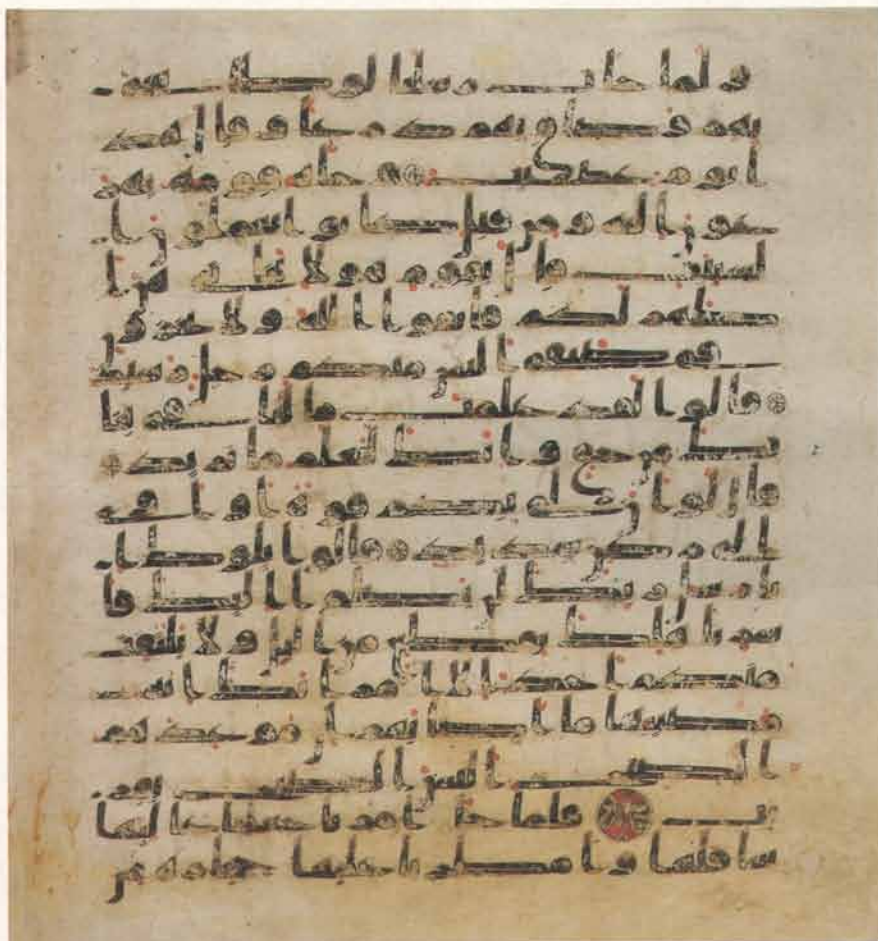 ولما جات رسلنا لوطا سى
بهم وضاق بهم ذرعا وقال هذ
ا يوم عصيب وجاه قومه يهر
عون اليه ومن قبل كانوا يعملون ا
لسيات قال يقوم هولا بناتي هن ا
طهر لكم فاتقوا الله ولا تخزون
في ضيفي اليس منكم رجل رشيد
قالوا لقد علمت ما لنا في بنا
تك من حق وانك لتعلم ما نريد
قال لو ان لي بكم قوة او اوي
الى ركن شديد قالوا يلوط ا
نا رسل ربك لن يصلوا اليك فا
سر باهلك بقطع من اليل ولا يلتفت
منكم احد الا امراتك انه
مصيبها ما اصابهم ان موعدهم
الصبح اليس الصبح بقر
يب فلما جا امرنا جعلنا عاليها
سافلها وامطرنا عليها حجارة من